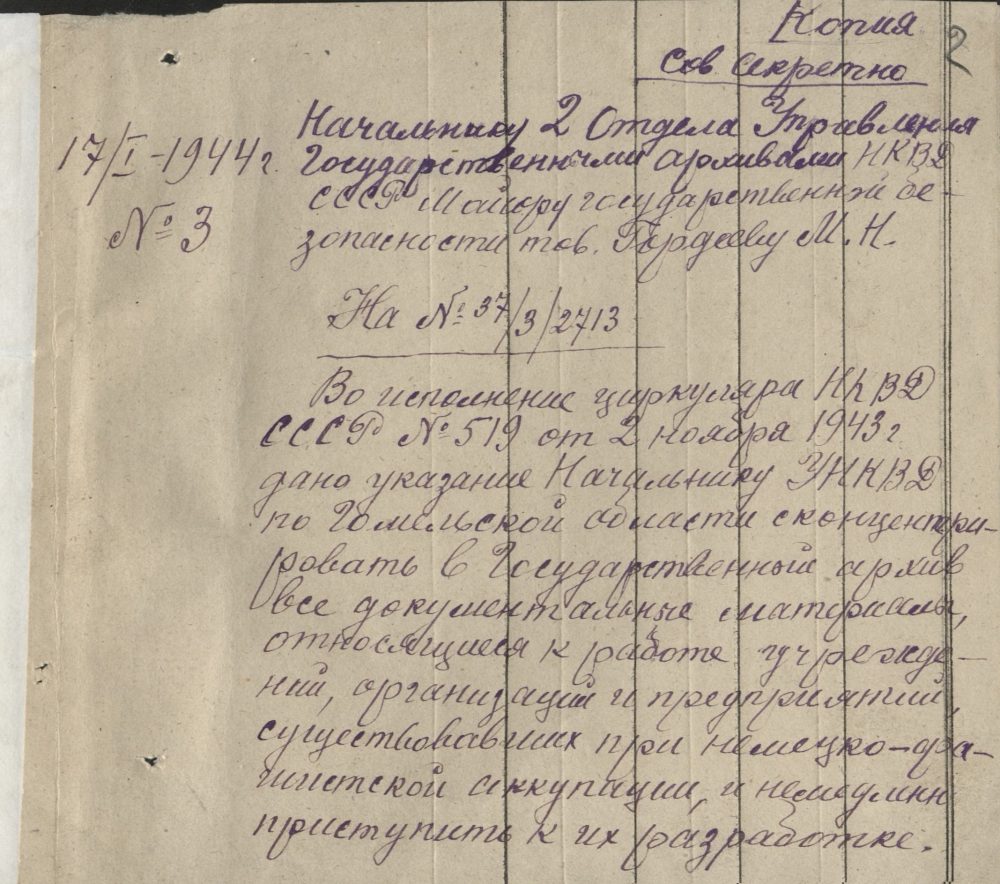 Копия
2
Сов секретно
17/I-1944 г.
№ 3
Начальнику 2 Отдела Управления
Государственными архивами НКВД
СССР Майору государственной бе-
зопасности тов. Гордееву М.Н.
На № 37/3/2713
Во исполнение циркуляра НКВД
СССР № 519 от 2 ноября 1943 г
дано указание Начальнику УНКВД
по Гомельской области сконцентри-
ровать в Государственный архив
все документальные материалы,
относящиеся к работе учрежде-
ний, организаций и предприятий,
существовавших при немецко-фа-
шистской аккупации, и немедленн
приступить к их разработке.